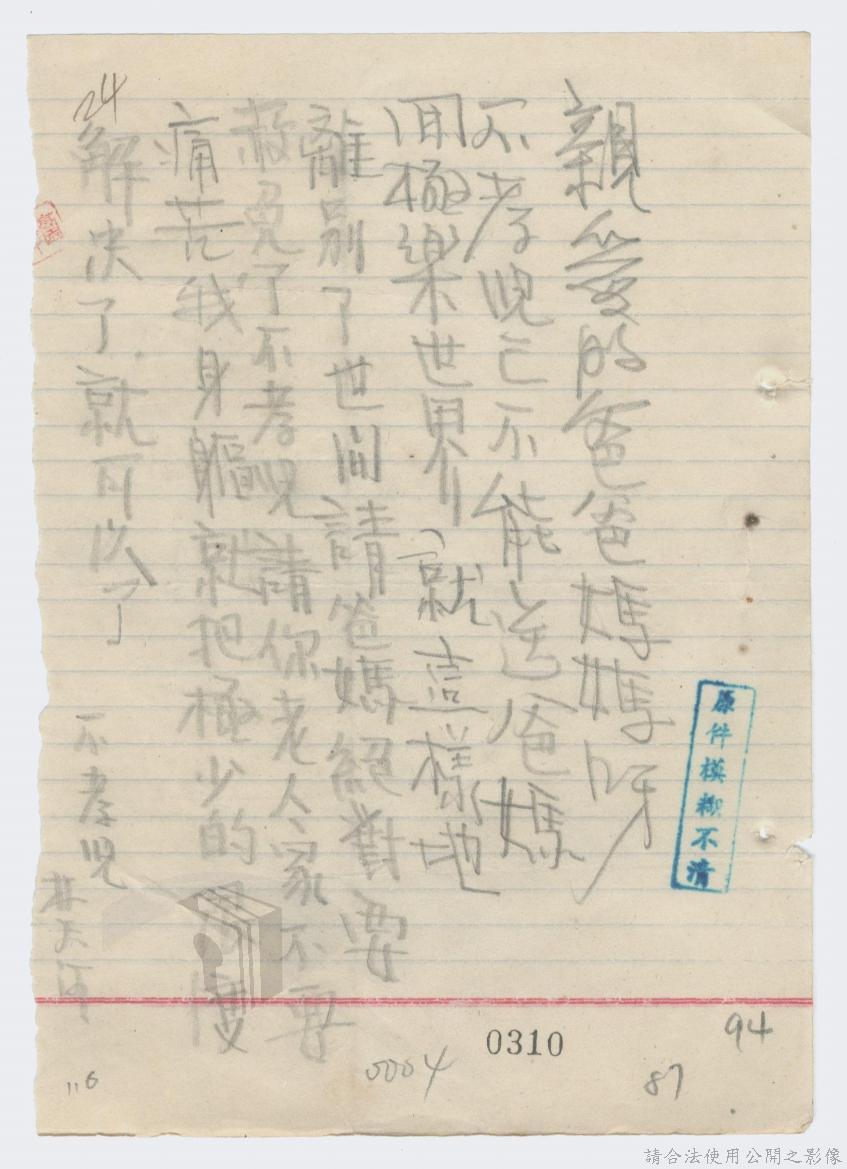 親愛的爸爸媽媽呀
不孝児已不能送爸媽
回極樂世界 就這樣地
離別了世间請爸媽絕對要
赦免了不孝児請你老人家不要
痛苦我身軀就把極少的
解決了就可以了
不孝児
林天河
24
原件模糊不清
0310
94
0004
87
116
請合法使用公開之影像